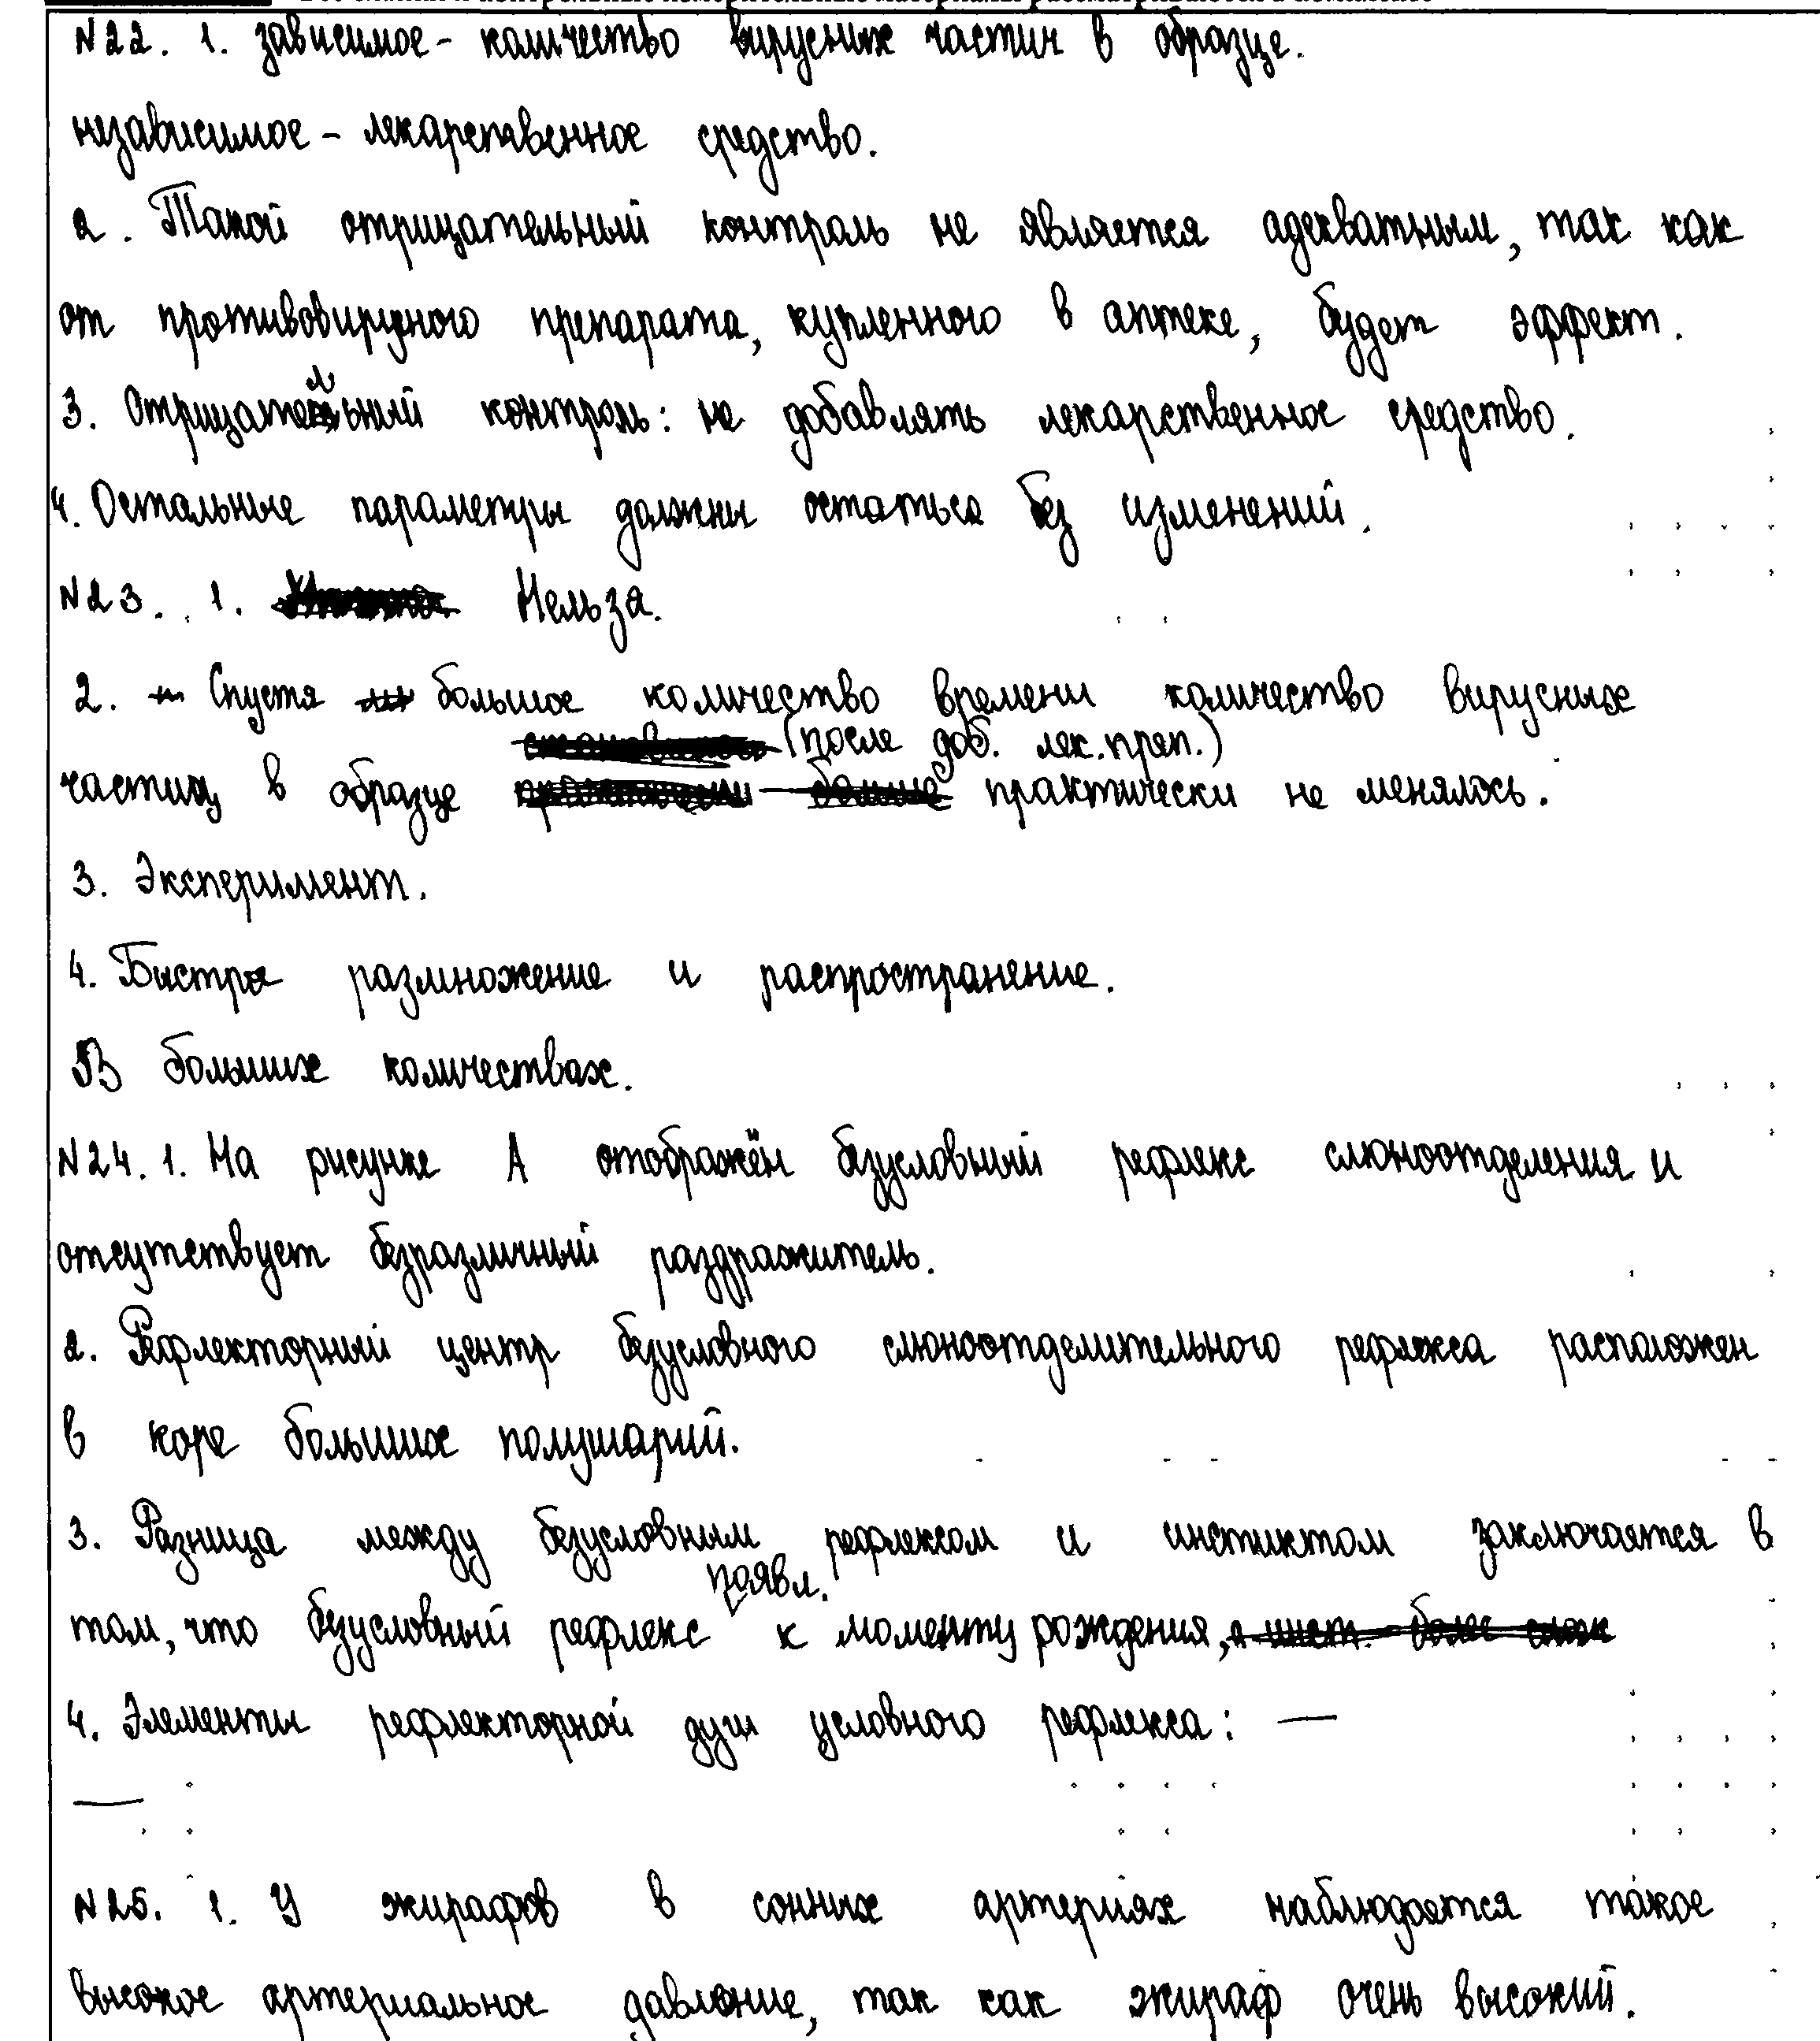 N22. 1. зависимое - количество вирусных частиц в образце.
независимое - лекарственное средство.
2. Такой отрицательный контроль не является адекватным, так как
от противовирусного препарата, купленного в аптеке, будет эффект.
3. Отрицательный контроль: не добавлять лекарственное средство.
4. Остальные параметры должны остаться без изменений.
N23. 1. Нельзя.
2. Спустя большое количество времени количество вирусных
(после доб. лек. преп.)
частиц в образце практически не менялось.
3. Эксперимент.
4. Быстрое размножение и распространение.
В больших количествах.
N24. 1. На рисунке А отображён безусловный рефлекс слюноотделения и
отсутствует безразличный раздражитель.
2. Рефлекторный центр безусловного слюноотделительного рефлекса расположен
в коре больших полушарий.
3. Разница между безусловным рефлексом и инстиктом заключается в
появл.
том, что безусловный рефлекс к моменту рождения, а инст. более слож
4. Элементы рефлекторной дуги условного рефлекса: —
—
N25. 1. У жирафов в сонных артериях наблюдается такое
высокое артериальное давление, так как жираф очень высокий.